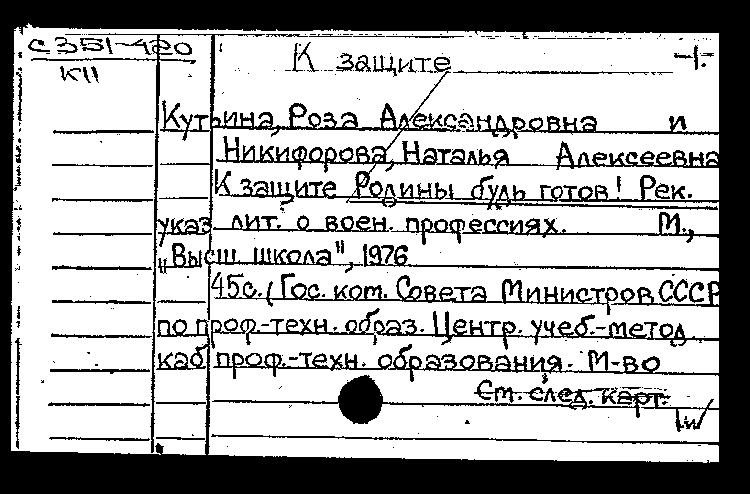 С351-420
К11
К защите
-1-
Кутьина, Роза Александровна и
Никифорова, Наталья Алексеевна
К защите Родины будь готов! Рек.
указ лит. о воен. профессиях. М.,
"Высш школа", 1976
45с. (Гос. ком. Совета Министров СССР
по проф.-техн. образ. Центр. учеб.-метод
каб проф.-техн. образования. М-во
См. след. карт.